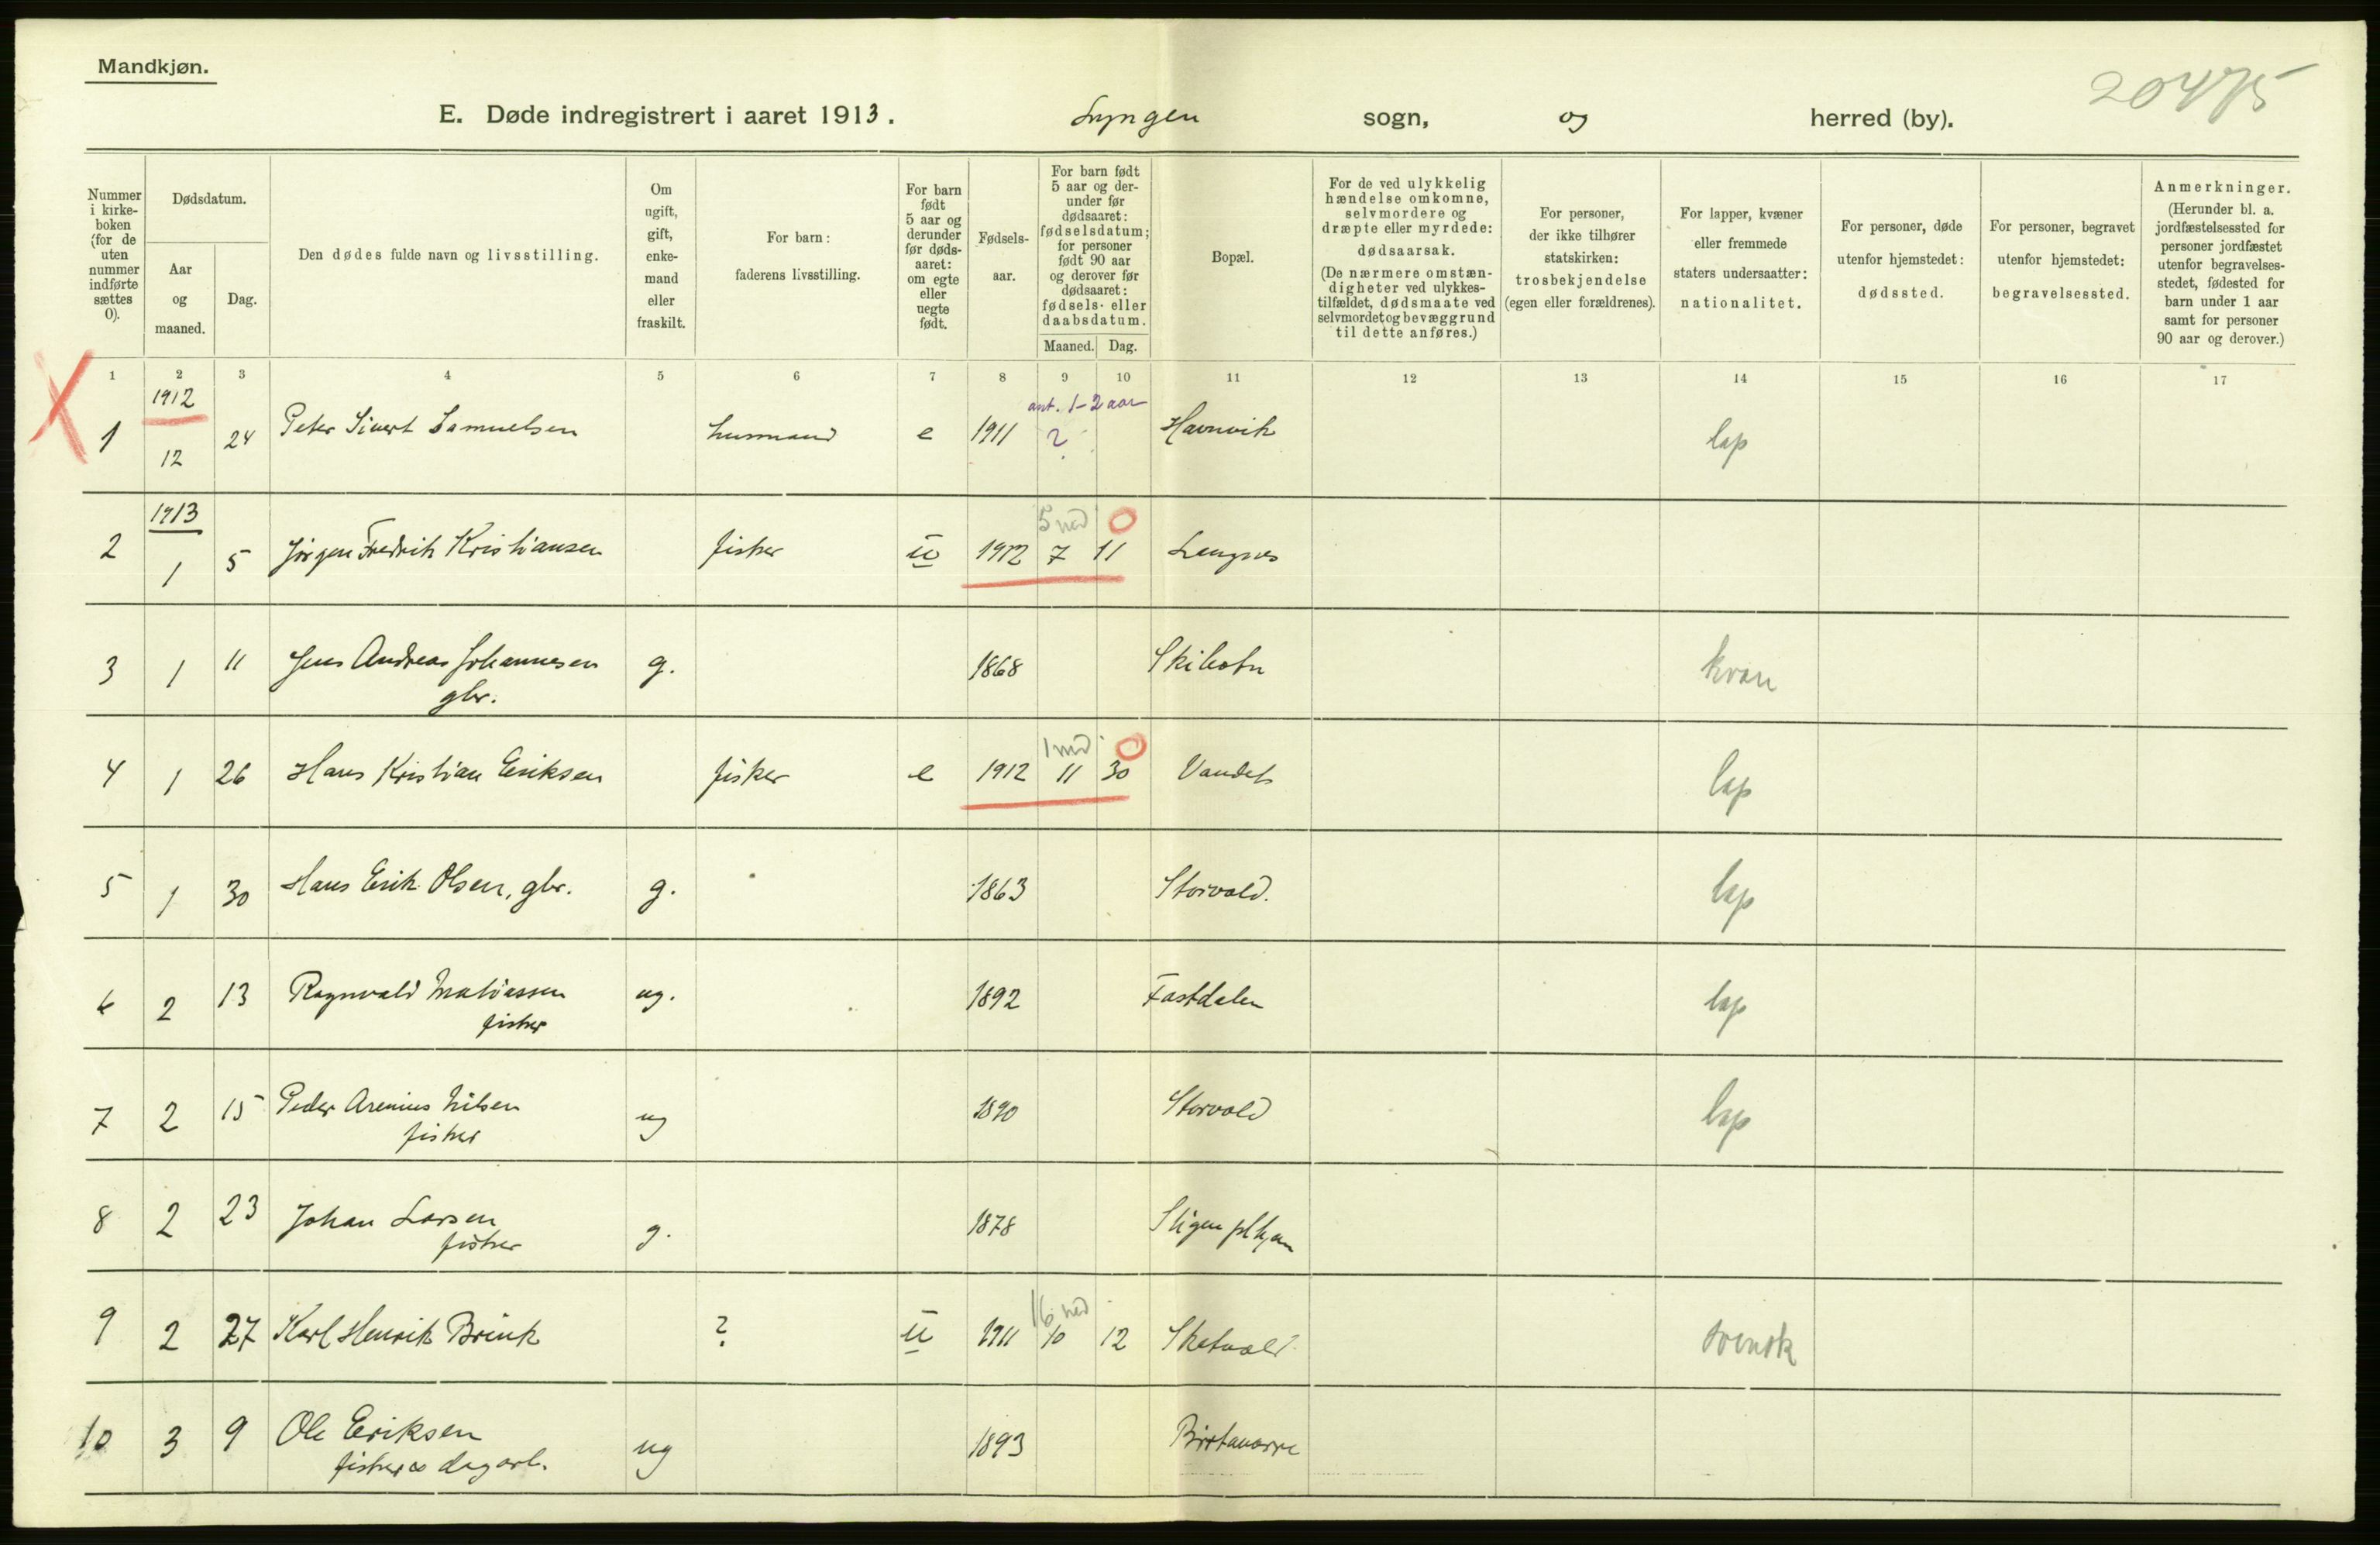 Mandkjøn.
20475
E. Døde indregistrert i aaret 1913. Lyngen sogn, og herred (by).
Nummer i kirkeboken (for de uten nummer indførte sættes 0).
Dødsdatum.
Aar og maaned.
Dag.
Den dødes fulde navn og livsstilling.
Om ugift, gift, enkemand eller fraskilt.
For barn: faderens livsstilling.
For barn født 5 aar og derunder før dødsaaret: om egte eller uegte født.
Fødselsaar.
For barn født 5 aar og derunder før dødsaaret: fødselsdatum; for personer født 90 aar og derover før dødsaaret: fødsels- eller daabsdatum.
Maaned. Dag.
Bopæl.
For de ved ulykkelig hændelse omkomne, selvmordere og dræpte eller myrdede: dødsaarsak. (De nærmere omstændigheter ved ulykkestilfældet, dødsmaate ved selvmordet og bevæggrund til dette anføres.)
For personer, der ikke tilhører statskirken: trosbekjendelse (egen eller forældrenes).
For lapper, kvæner eller fremmede staters undersaatter: nationalitet.
For personer, døde utenfor hjemstedet: dødssted.
For personer, begravet utenfor hjemstedet: begravelsessted.
Anmerkninger. (Herunder bl. a. jordfæstelsessted for personer jordfæstet utenfor begravelsesstedet, fødested for barn under 1 aar samt for personer 90 aar og derover.)
1 2 3 4 5 6 7 8 9 10 11 12 13 14 15 16 17
1912
ant. 1-2 aar
1 12 24 Peter Sivert Samuelsen husmand e 1911 ? Havnvik lap
1913
5 md 0
2 1 5 Jörgen Fredrik Kristiansen fisker u 1912 7 11 Lengnes
3 1 11 Jens Andreas Johannesen g. 1868 Skibotn kvæn
gbr.
1 md 0
4 1 26 Hans Kristian Eriksen fisker e 1912 11 30 Vandet lap
5 1 30 Hans Erik Olsen, gbr. g. 1863 Storvold. lap
6 2 13 Ragnvald Matiassen ug. 1892 Fastdalen lap
fisker
7 2 15 Peder Arenius Nilsen ug 1890 Storvold lap
fisker
8 2 23 Johan Larsen g. 1878 Stigen
fisker
16 md
9 2 27 Karl Henrik Brink ? u 1911 10 12 Skatvold svensk
10 3 9 Ole Eriksen ug 1893 Birtavarre
fisker & dagarb.